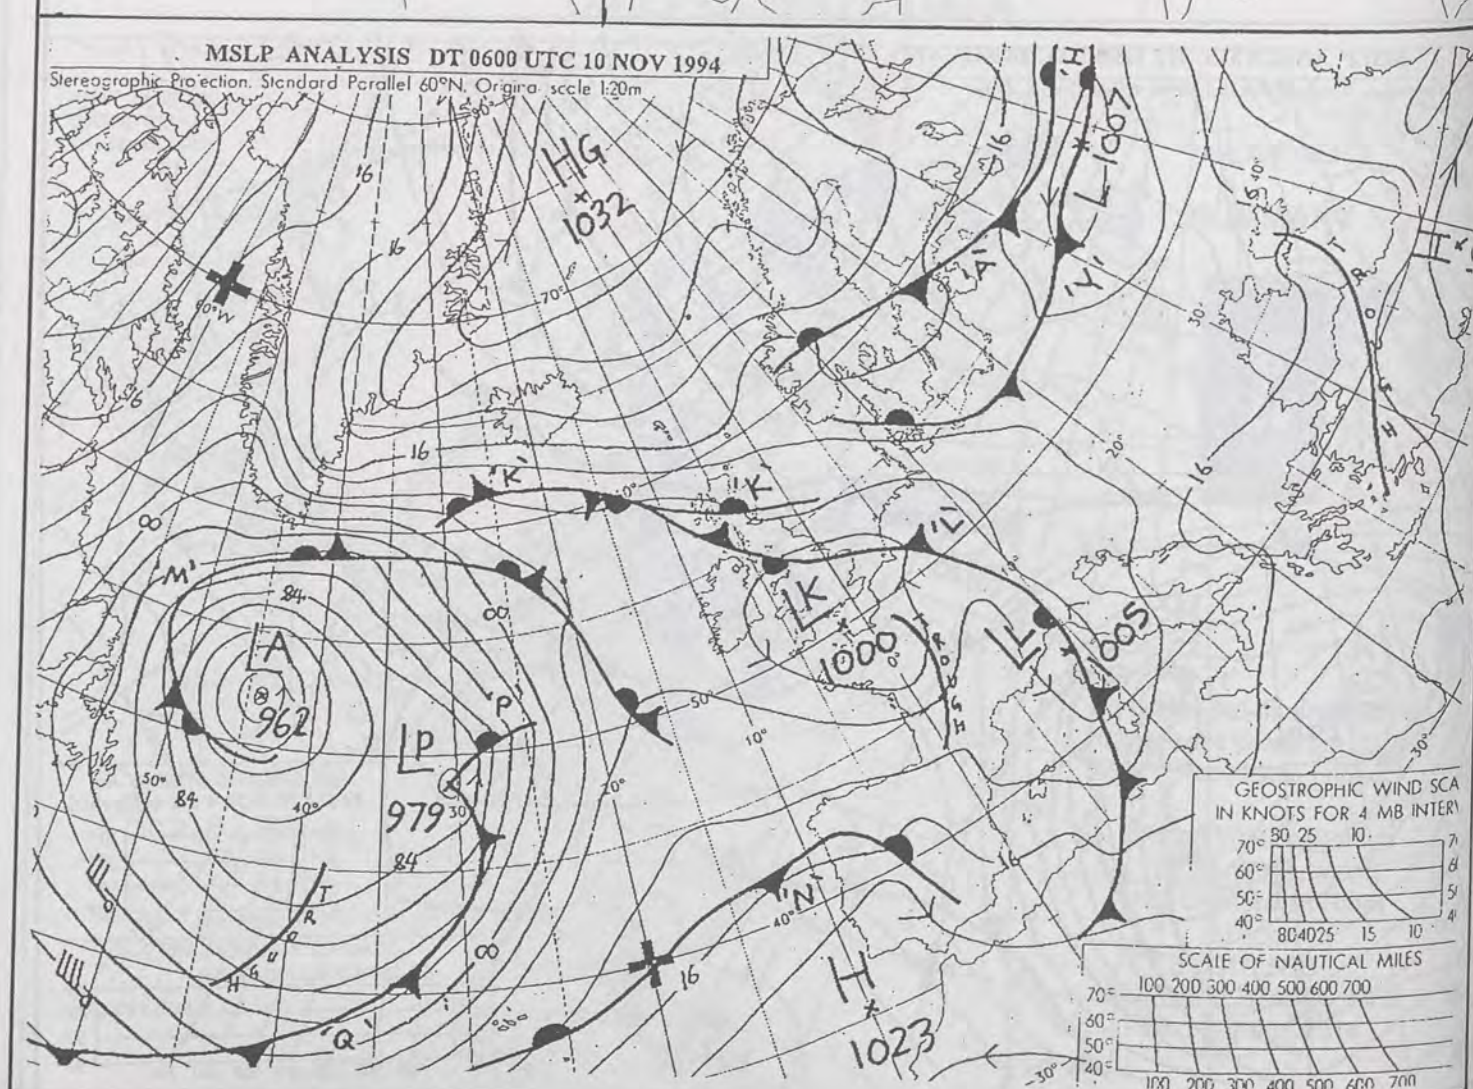 MSLP ANALYSIS DT 0600 UTC 10 NOV 1994
Stereographic Projection. Standard Parallel 60°N. Origina scale 1:20m
80°
'H'
16
HG
1032
16
L-1007
16
40°
16
TROUGH
H
16
'A'
'Y'
70°
60°W
30°
16
20°
16
'K'
'K'
0°
'L'
16
00
M'
84
LA
962
00
LK
1000
0°
TROUGH
LL
1005
P
LP
979
50°
84
40°
30
84
20°
50°
10°
30°
TROUGH
'Q'
00
'N'
40°
16
H
1023
-30°
GEOSTROPHIC WIND SCA
IN KNOTS FOR 4 MB INTERV
80 25 10
70°
60°
50°
40°
80 40 25 15 10
SCALE OF NAUTICAL MILES
100 200 300 400 500 600 700
70°
60°
50°
40°
100 200 300 400 500 600 700